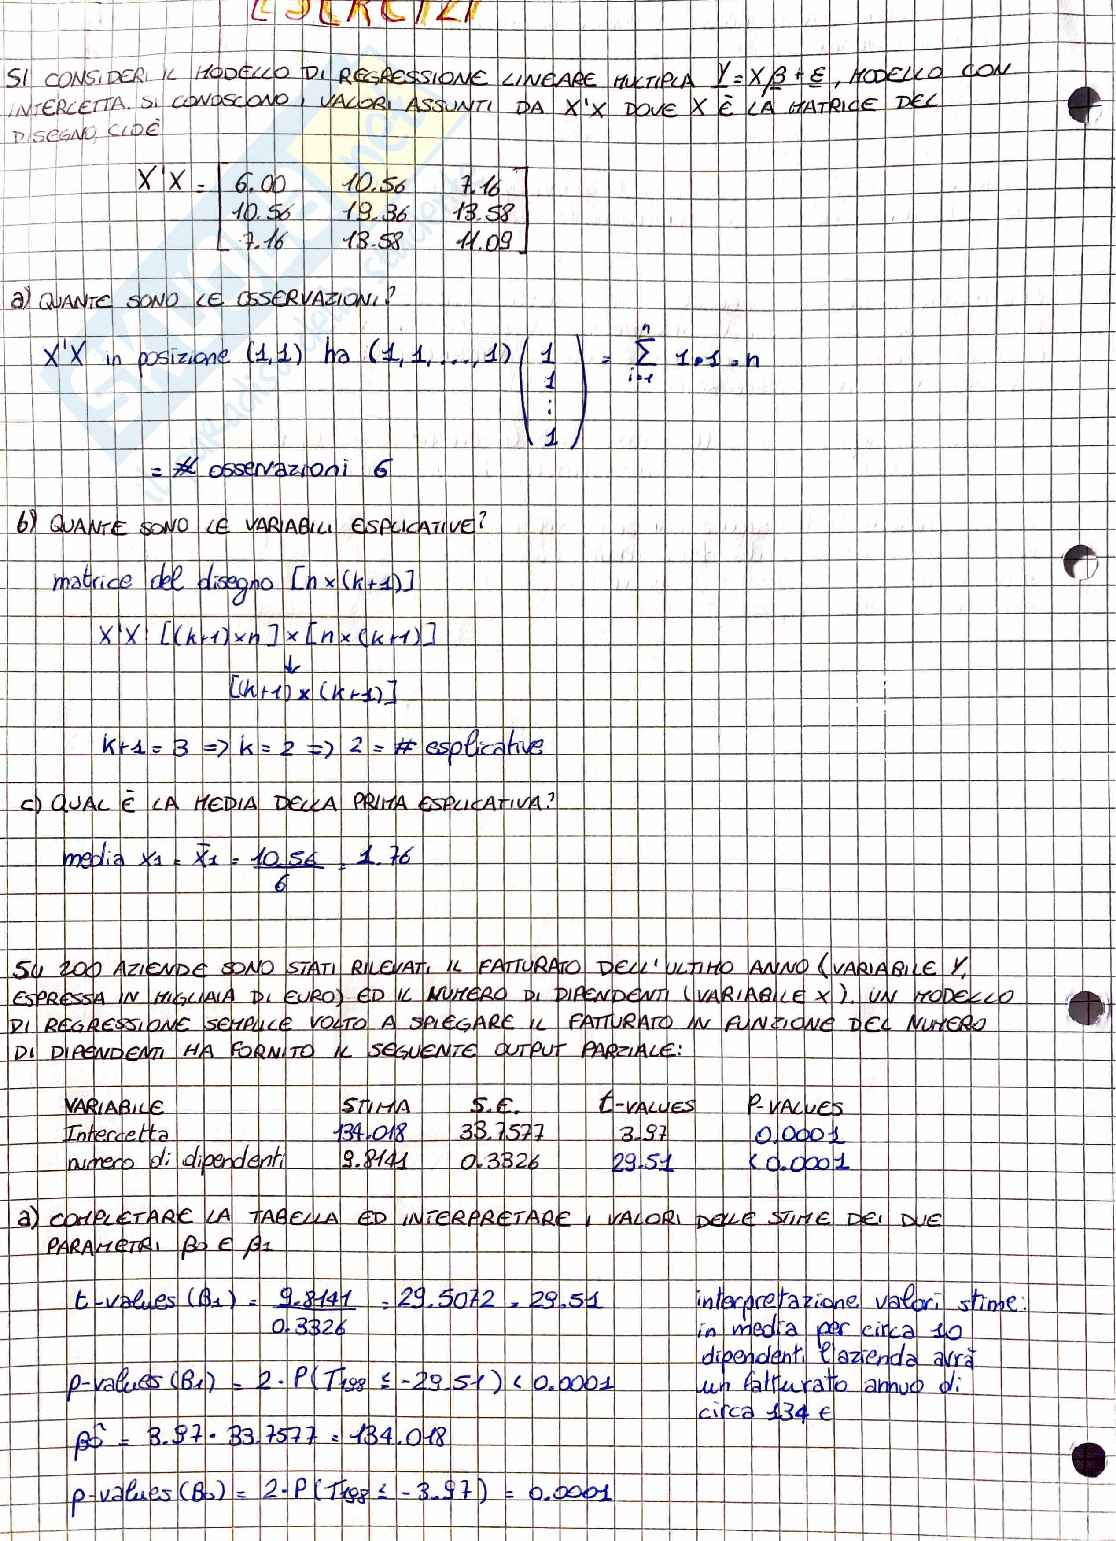 ESERCIZI
SI CONSIDERI IL MODELLO DI REGRESSIONE LINEARE MULTIPLA Y = Xβ + ε, MODELLO CON
INTERCETTA. SI CONOSCONO I VALORI ASSUNTI DA X'X DOVE X È LA MATRICE DEL
DISEGNO, CIOÈ
X'X = [ 6.00 10.56 7.16
10.56 19.36 13.58
7.16 13.58 11.09 ]
a) QUANTE SONO LE OSSERVAZIONI?
X'X in posizione (1,1) ha (1,1,...,1) (1 1 ⋮ 1) = Σ i=1 n 1·1 = n
= # osservazioni 6
b) QUANTE SONO LE VARIABILI ESPLICATIVE?
matrice del disegno [n x (k+1)]
X'X: [(k+1) x n] x [n x (k+1)]
↓
[(k+1) x (k+1)]
k+1 = 3 => k = 2 => 2 = # esplicative
c) QUAL È LA MEDIA DELLA PRIMA ESPLICATIVA?
media x1 = x̄1 = 10.56 / 6 = 1.76
SU 200 AZIENDE SONO STATI RILEVATI IL FATTURATO DELL'ULTIMO ANNO (VARIABILE Y,
ESPRESSA IN MIGLIAIA DI EURO) ED IL NUMERO DI DIPENDENTI (VARIABILE X). UN MODELLO
DI REGRESSIONE SEMPLICE VOLTO A SPIEGARE IL FATTURATO IN FUNZIONE DEL NUMERO
DI DIPENDENTI HA FORNITO IL SEGUENTE OUTPUT PARZIALE:
VARIABILE STIMA S.E. t-VALUES P-VALUES
Intercetta 134.018 33.7577 3.97 0.0001
numero di dipendenti 9.8141 0.3326 29.51 <0.0001
a) COMPLETARE LA TABELLA ED INTERPRETARE I VALORI DELLE STIME DEI DUE
PARAMETRI β0 E β1
t-values (β1) = 9.8141 / 0.3326 = 29.5072 = 29.51
p-values (β1) = 2·P(T198 ≤ -29.51) < 0.0001
β̂0 = 3.97 · 33.7577 = 134.018
p-values (β0) = 2·P(T198 ≤ -3.97) = 0.0001
interpretazione valori stime:
in media per circa 10
dipendenti l'azienda avrà
un fatturato annuo di
circa 134 €